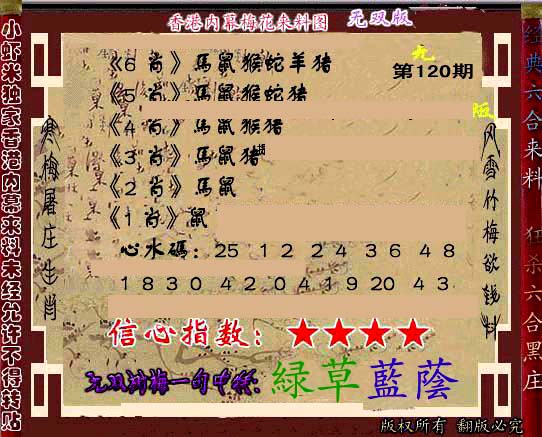 香港内幕梅花来料图 无双版
第120期
无
版
小虾米独家香港内幕来料未经允许不得转贴
经典六合来料 狂杀六合黑庄
寒梅屠庄生肖
风雪竹梅欲钱料
《6 肖》馬鼠猴蛇羊猪
《5 肖》馬鼠猴蛇猪
《4 肖》馬鼠猴猪
《3 肖》馬鼠猪
《2 肖》馬鼠
《1 肖》鼠
心水碼: 25 12 24 36 48
18 30 42 04 19 20 43
信心指数: ★★★★
綠草藍蔭
版权所有 翻版必究